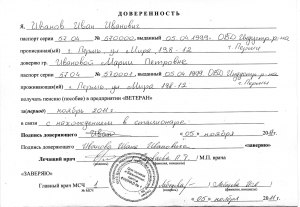 ДОВЕРЕННОСТЬ
Я, Иванов Иван Иванович
паспорт серии 57 04 № 570000, выданный 05.04.1999. ОВД Индустр. р-на
г. Перми
прописанный(ая) г. Пермь ул Мира 198-12
доверяю Ивановой Марии Петровне
паспорт серии 57 04 № 570001, выданный 05.04.1999. ОВД Индустр. р-на
г. Перми
прописанный(ая) г. Пермь, ул Мира 198-12
получить пенсию (пособие) в предприятии «ВЕТЕРАН»
за(период) ноябрь 2011г
в связи с нахождением в стационаре
Подпись доверяющего «05» ноября 2011г.
Подпись доверяющего Иванова Ивана Ивановича «заверяю»
Лечащий врач /М.П. врача
«ЗАВЕРЯЮ»
Главный врач МСЧ
«05» ноября 2011г.